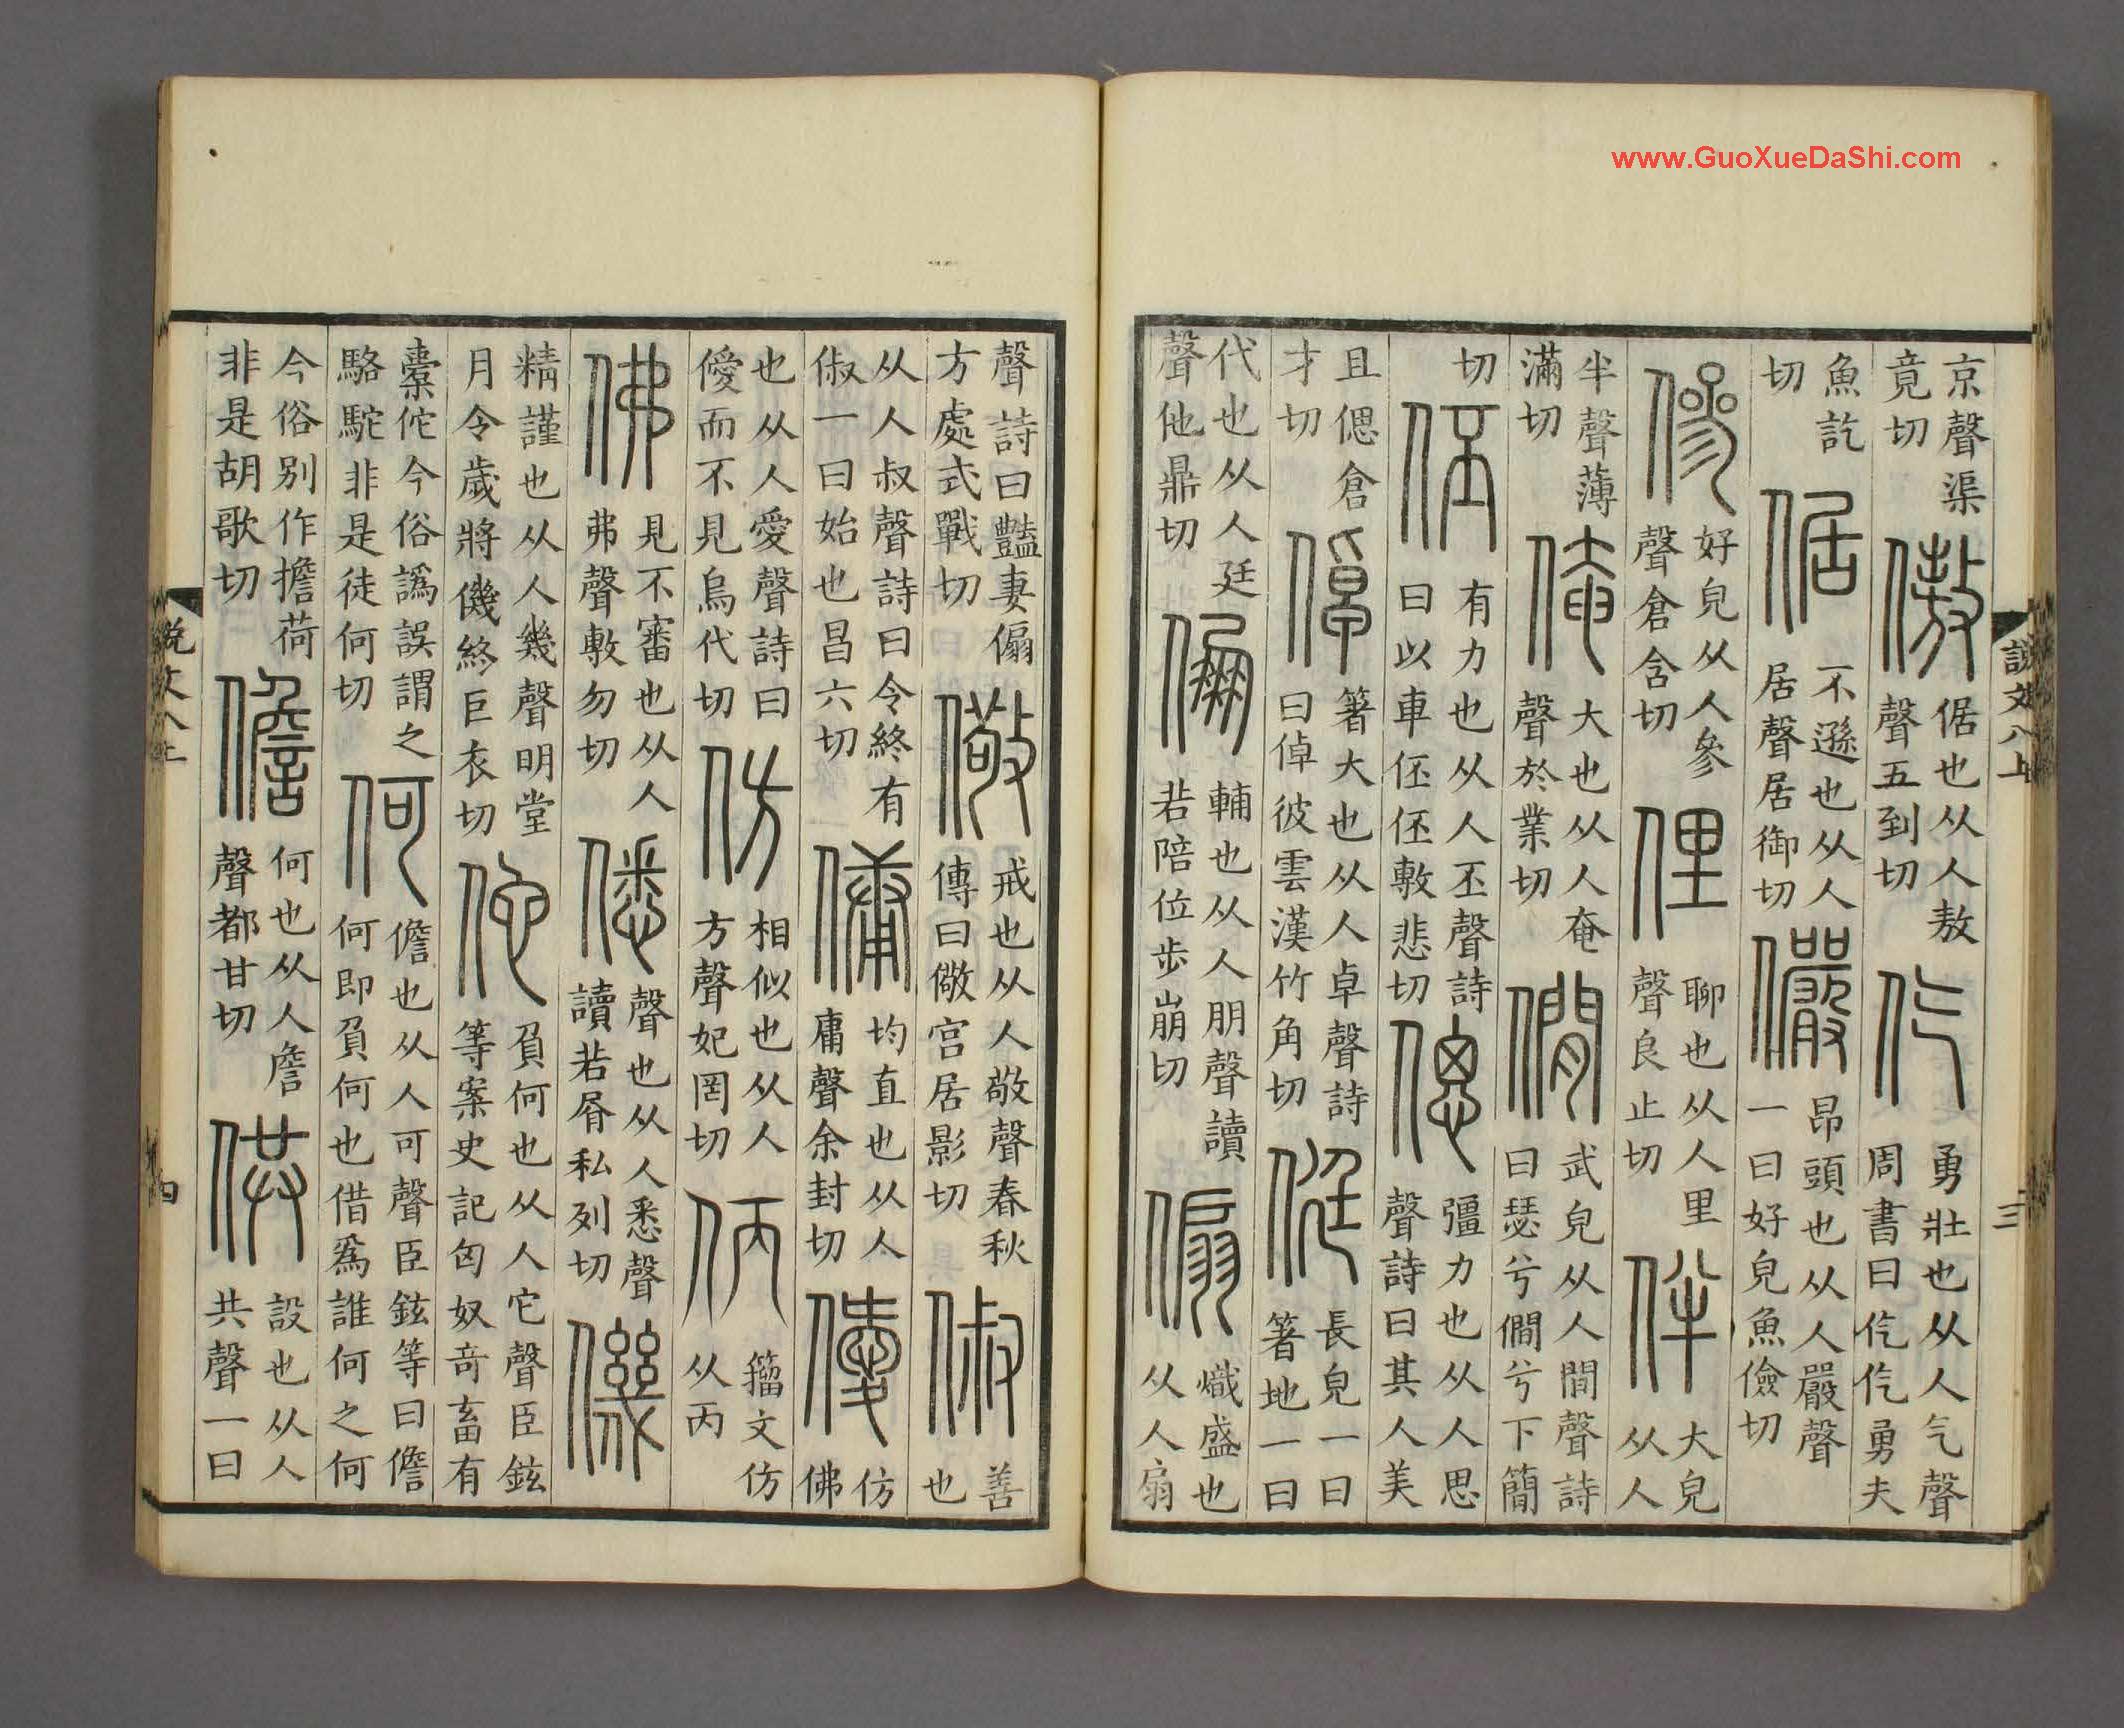 www.GuoXueDaShi.com
説文八上
三
京聲渠竟切傲倨也从人敖聲五到切仡勇壯也从人气聲周書曰仡仡勇夫
魚訖切倨不遜也从人居聲居御切儼昂頭也从人嚴聲一曰好皃魚儉切
傪好皃从人參聲倉含切俚聊也从人里聲良止切伴大皃从人
半聲薄滿切俺大也从人奄聲於業切僩武皃从人閒聲詩曰瑟兮僩兮下簡
切伾有力也从人丕聲詩曰以車伾伾敷悲切偲彊力也从人思聲詩曰其人美
且偲倉才切倬箸大也从人卓聲詩曰倬彼雲漢竹角切侹長皃一曰箸地一曰
代也从人廷聲他鼎切倗輔也从人朋聲讀若陪位步崩切傓熾盛也从人扇
聲詩曰豔妻傓方處式戰切儆戒也从人敬聲春秋傳曰儆宮居影切俶善也
从人叔聲詩曰令終有俶一曰始也昌六切傭均直也从人庸聲余封切僾仿佛
也从人愛聲詩曰僾而不見烏代切仿相似也从人方聲妃罔切㑂籒文仿从丙
佛見不審也从人弗聲敷勿切僁聲也从人悉聲讀若屑私列切僟
精謹也从人幾聲明堂月令歲將僟終巨衣切佗負何也从人它聲臣鉉等案史記匈奴奇畜有
橐佗今俗譌誤謂之駱駝非是徒何切何儋也从人可聲臣鉉等曰儋何即負何也借爲誰何之何
今俗别作擔荷非是胡歌切儋何也从人詹聲都甘切供設也从人共聲一曰
說文八上
四